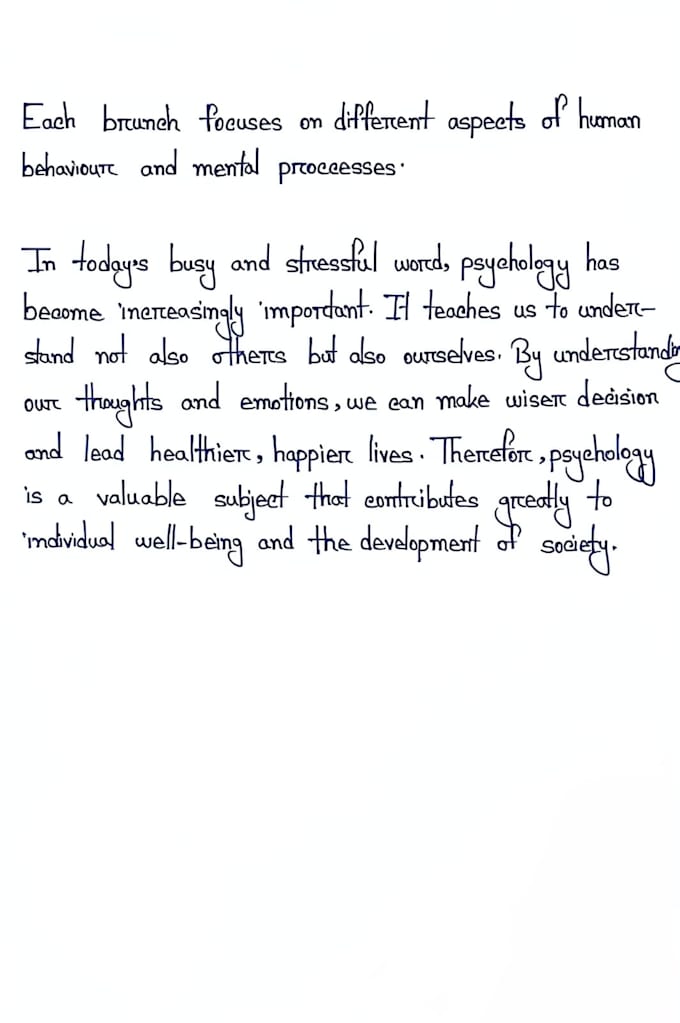 Each brunch focuses on different aspects of human
behaviour and mental proccesses.
In today's busy and stressful word, psychology has
become increasingly important. It teaches us to under-
stand not also others but also ourselves. By understanding
our thoughts and emotions, we can make wiser decision
and lead healthier, happier lives. Therefore, psychology
is a valuable subject that contributes greatly to
individual well-being and the development of society.